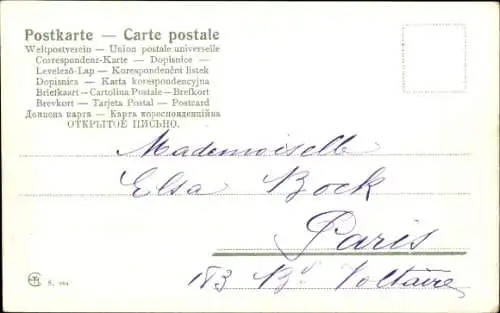 Postkarte — Carte postale
Weltpostverein — Union postale universelle
Correspondenz-Karte — Dopisnice —
Levelező-Lap — Korespondenční listek
Dopisnica — Karta korespondencyjna
Briefkaart — Cartolina Postale — Brefkort
Brevkort — Tarjeta Postal — Postcard
Дописна карта — Карта кореспонденційна
ОТКРЫТОЕ ПИСЬМО.
Mademoiselle
Elsa Bock
Paris
183 Bd Voltaire
S.